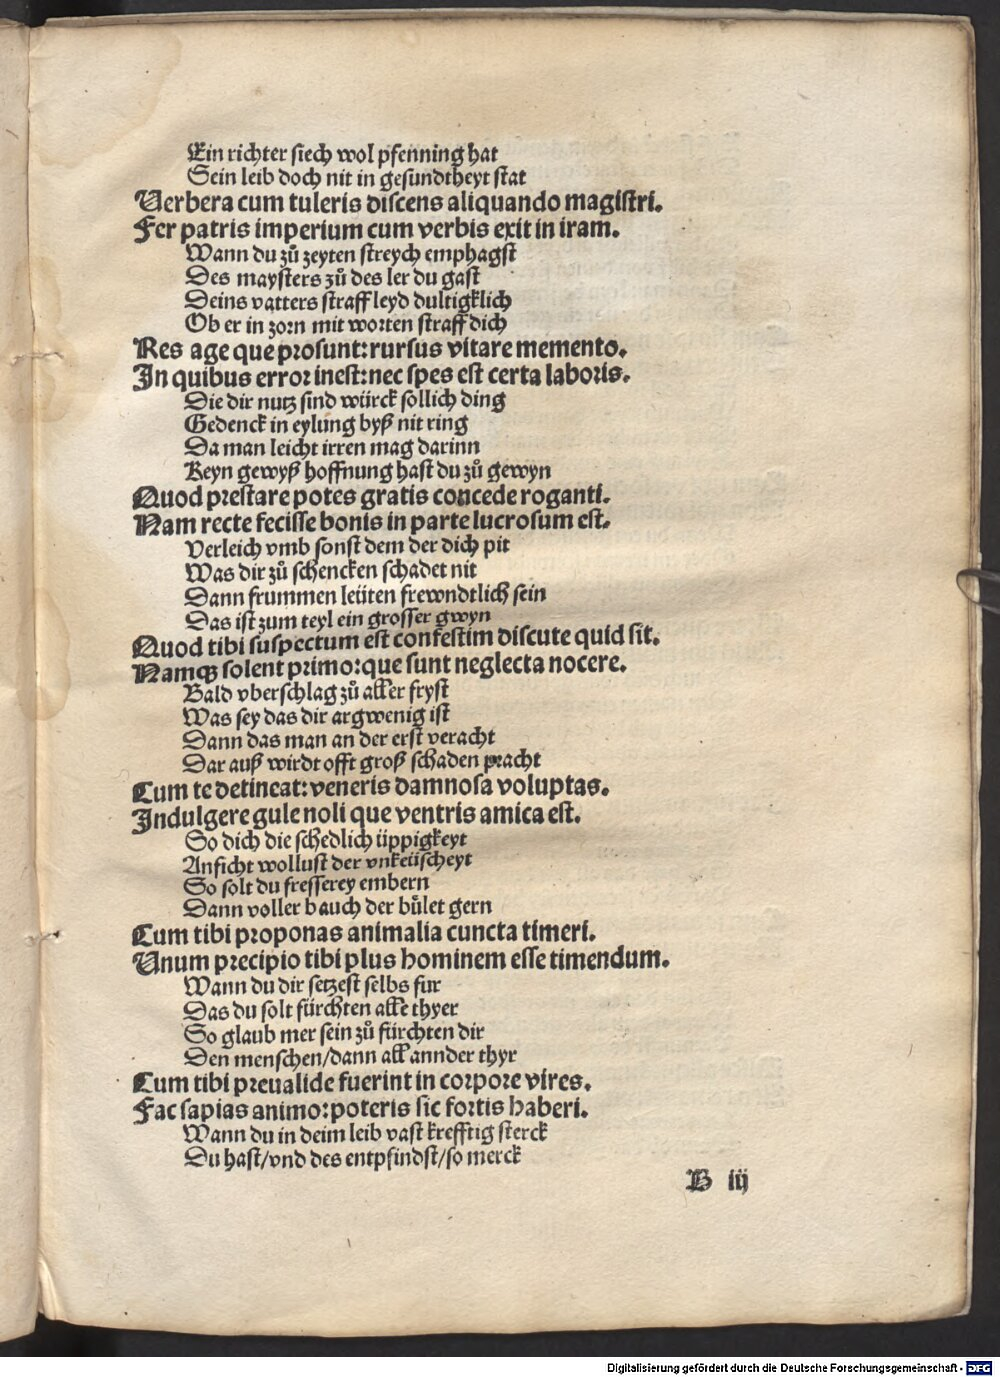 Ein richter siech wol pfenning hat
Sein leib doch nit in gesundtheyt stat
Uerbera cum tuleris discens aliquando magistri.
Fer patris imperium cum verbis exit in iram.
Wann du zů zeyten streych emphagst
Des maysters zů des ler du gast
Deins vatters straff leyd dultigklich
Ob er in zorn mit worten straff dich
Res age que prosunt: rursus vitare memento.
In quibus error inest: nec spes est certa laboris.
Die dir nutz sind würck sollich ding
Gedenck in eylung byß nit ring
Da man leicht irren mag darinn
Keyn gewyß hoffnung hast du zů gewyn
Quod prestare potes gratis concede roganti.
Nam recte fecisse bonis in parte lucrosum est.
Verleich vmb sonst dem der dich pit
Was dir zů schencken schadet nit
Dann frummen leüten frewndtlich sein
Das ist zum teyl ein grosser gwyn
Quod tibi suspectum est confestim discute quid sit.
Namqꝫ solent primo: que sunt neglecta nocere.
Bald vberschlag zů aller fryst
Was sey das dir argwenig ist
Dann das man an der erst veracht
Dar auß wirdt offt groß schaden pracht
Cum te detineat: veneris damnosa voluptas.
Indulgere gule noli que ventris amica est.
So dich die schedlich üppigkeyt
Anficht wollust der vnkeüscheyt
So solt du fresserey embern
Dann voller bauch der bůlet gern
Cum tibi proponas animalia cuncta timeri.
Unum precipio tibi plus hominem esse timendum.
Wann du dir setzest selbs fur
Das du solt fürchten alle thyer
So glaub mer sein zů fürchten dir
Den menschen/dann all annder thyr
Cum tibi preualide fuerint in corpore vires.
Fac sapias animo: poteris sic fortis haberi.
Wann du in deim leib vast krefftig sterck
Du hast/vnd des entpfindst/so merck
B iij
Digitalisierung gefördert durch die Deutsche Forschungsgemeinschaft - DFG